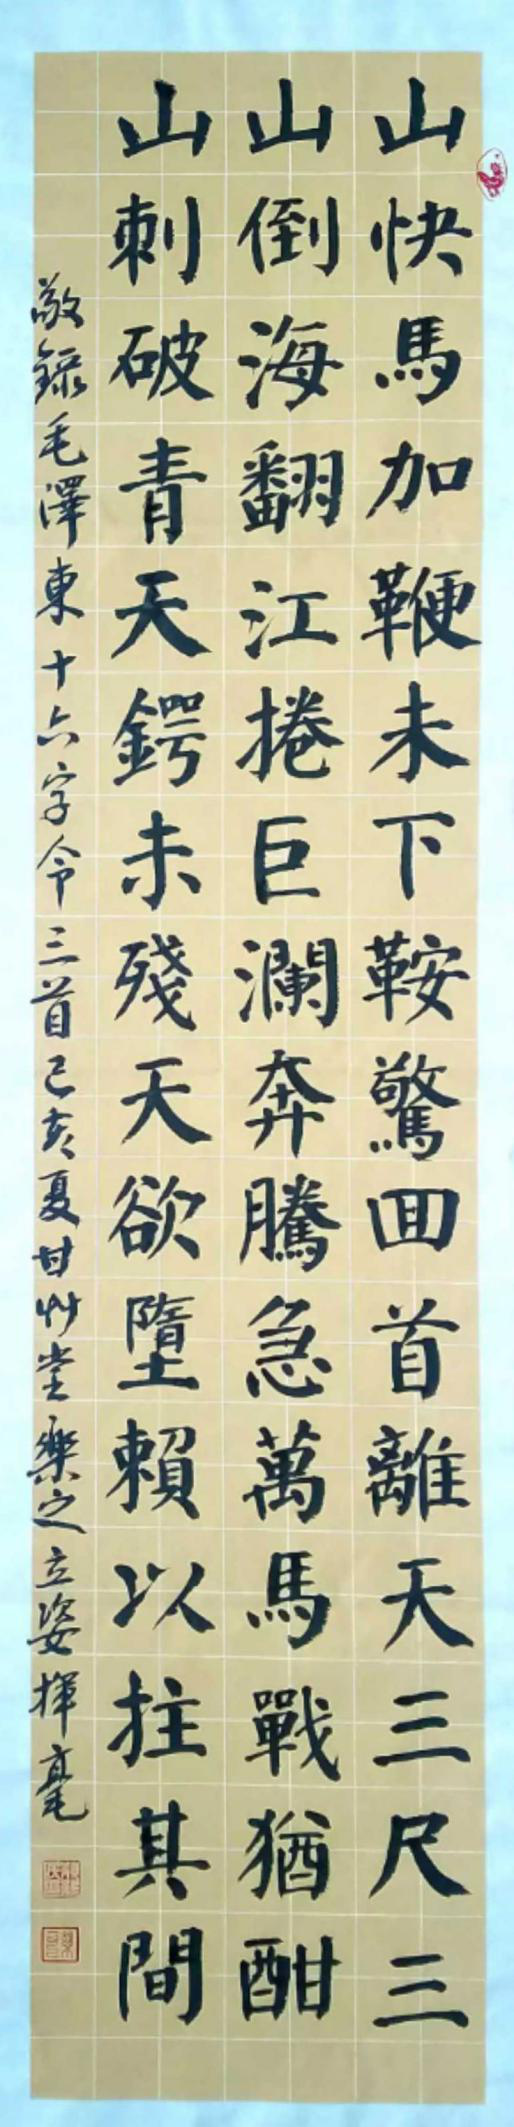 山快馬加鞭未下鞍驚回首離天三尺三
山倒海翻江捲巨瀾奔騰急萬馬戰猶酣
山刺破青天鍔未殘天欲墮賴以拄其間
敬錄毛澤東十六字令三首己亥夏甘艸堂樂之立姿揮毫